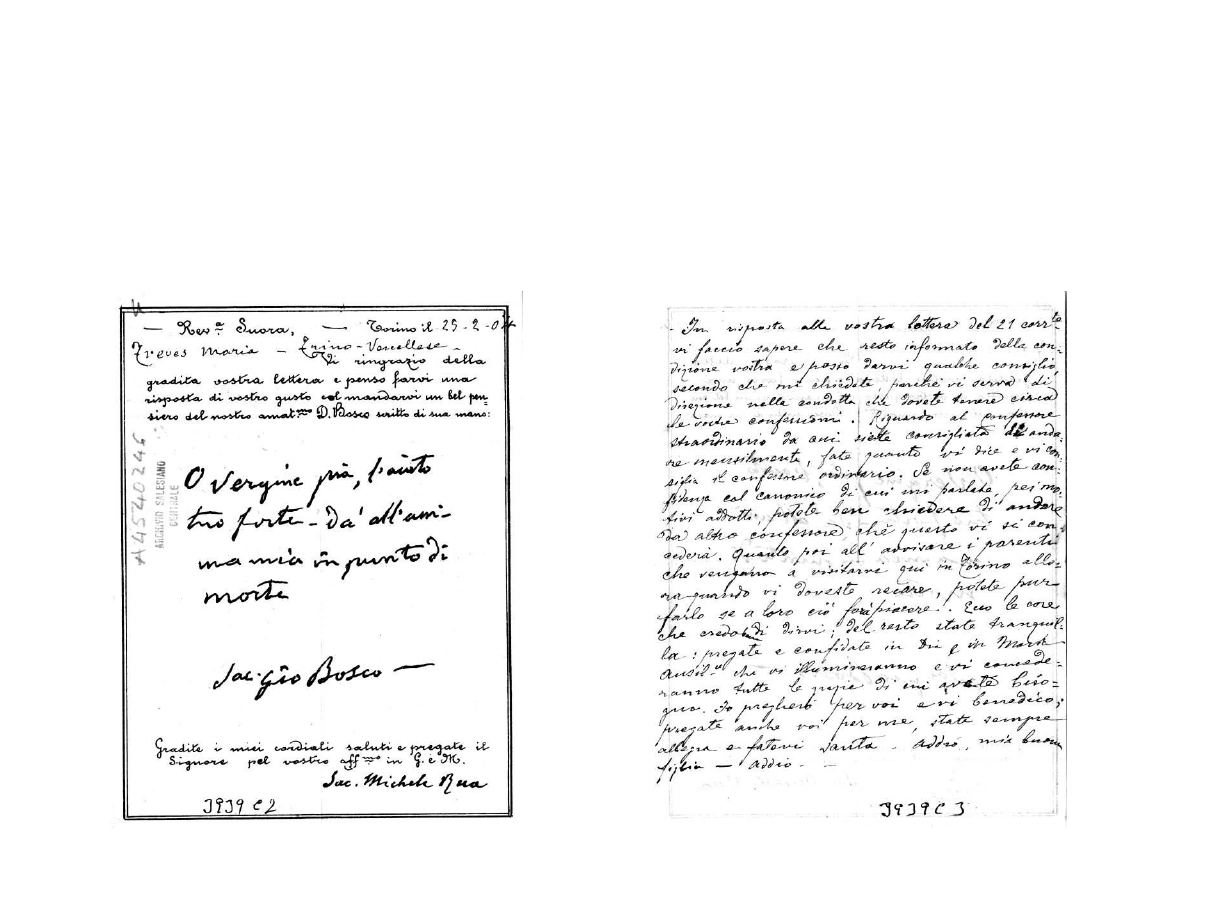 — Rev.ª Suora, — Torino il 25-2-04
Treves Maria – Trino-Vercellese –
Vi ringrazio della
gradita vostra lettera e penso farvi una
risposta di vostro gusto col mandarvi un bel pen=
siero del nostro amat.mo D. Bosco scritto di sua mano:
O Vergine pia, l'aiuto
tuo forte – Da' all'ani-
ma mia in punto di
morte
Sac. Gio Bosco —
Gradite i miei cordiali saluti e pregate il
Signore pel vostro aff.mo in G. e M.
Sac. Michele Rua
3939 C 2
A4540246
ARCHIVIO SALESIANO
CENTRALE
In risposta alla vostra lettera del 21 corr.te
vi faccio sapere che resto informato della con-
dizione vostra e posso darvi qualche consiglio,
secondo che mi chiedete perché vi serva di
direzione nella condotta che dovete tenere circa
le vostre confessioni. Riguardo al confessore
straordinario da cui siete consigliata di anda-
re mensilmente, fate quanto vi dice e vi con-
siglia il confessore ordinario. Se non avete con-
fidenza col canonico di cui mi parlate, pei mo-
tivi addotti, potete ben chiedere di andare
da altro confessore, che questo vi si con-
cederà. Quanto poi all'avvisare i parenti
che vengano a visitarvi qui in Torino allo-
ra quando vi doveste recare, potete pur
farlo se a loro ciò farà piacere. Ecco le cose
che credo di dirvi; del resto state tranquil-
la: pregate e confidate in Dio e in Maria
Ausil.ce che vi illumineranno e vi concede-
ranno tutte le grazie di cui avete biso=
gno. Io pregherò per voi e vi benedico;
pregate anche voi per me, state sempre
allegra e fatevi santa – addio, mia buona
figlia — addio. —
3939 C 3